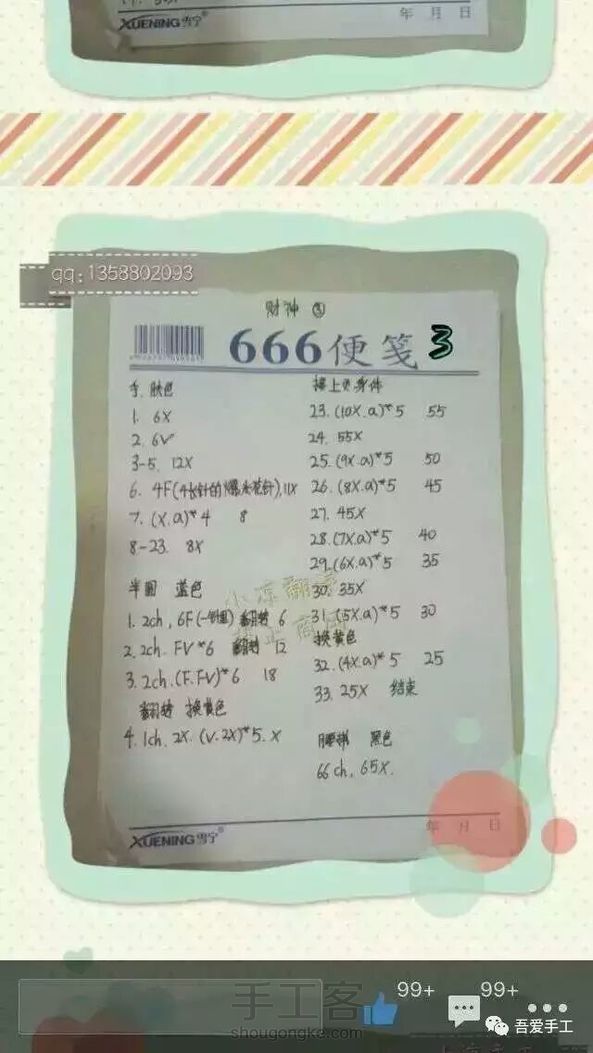 XUENING雪宁®
年 月 日
qq:1358802093
财神 ③
666便笺 3
手. 肤色
1. 6X
2. 6V
3-5. 12X
6. 4F(4长针的爆米花针),11X
7. (X.a)*4 8
8-23. 8X
半圆 蓝色
1. 2ch, 6F(一针里) 翻转 6
2. 2ch. FV*6 翻转 12
3. 2ch.(F.FV)*6 18
翻转 换黄色
4. 1ch. 2X. (V.2X)*5. X
接上页身体
23. (10X.a)*5 55
24. 55X
25. (9X.a)*5 50
26. (8X.a)*5 45
27. 45X
28. (7X.a)*5 40
29. (6X.a)*5 35
30. 35X
31. (5X.a)*5 30
换黄色
32. (4X.a)*5 25
33. 25X 结束
腰带 黑色
66ch, 65X.
小凉翻译
禁止商用
年 月 日
XUENING雪宁®
99+
99+
手工客
shougongke.com
吾爱手工